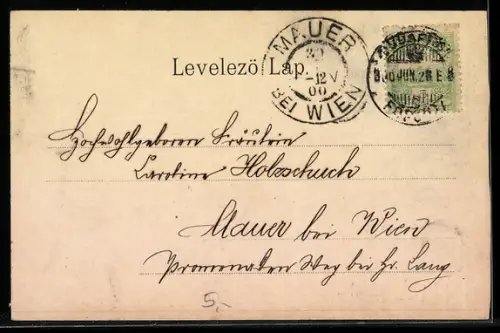 MAUER
30
-12 V
00
BEI WIEN
BUDAPEST
900 JUN. 28 E 8
Levelező Lap.
Hochwohlgeboren Fräulein
Caroline Holzschuch
Mauer bei Wien
Promenaden Weg bei Hr. Lang
5,-